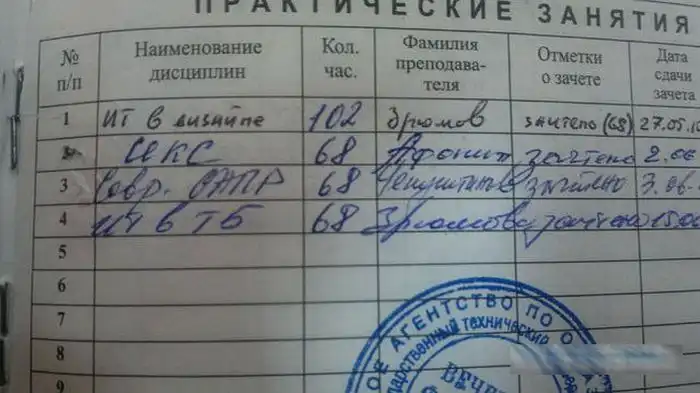 ПРАКТИЧЕСКИЕ ЗАНЯТИЯ
№ п/п Наименование дисциплин Кол. час. Фамилия преподава-теля Отметки о зачете Дата сдачи зачета
1 ИТ в дизайне 102 Зрюмов зачтено (68) 27.05.
СЕКС 68 Афонин зачтено 2.06
3 Совр. САПР 68 зачтено 3.06.
4 ИТ в ТБ 68 Зрюмова зачтено 15.0
5
6
7
8
9
АГЕНТСТВО ПО О
технический
Вече